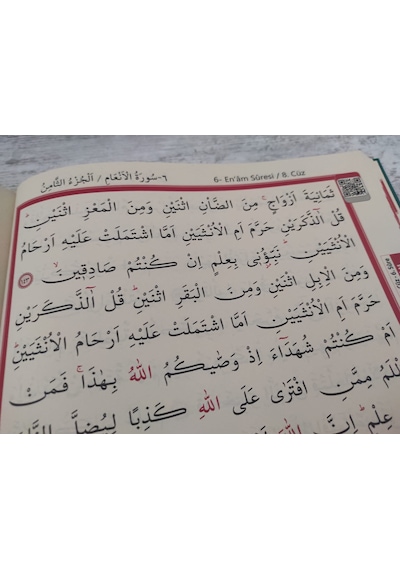 ٦-سُورَةُ الْاَنْعَامِ / اَلْجُزْءُ الثَّامِنُ
6- En'âm Sûresi / 8. Cüz
ثَمَانِيَةَ اَزْوَاجٍۚ مِنَ الضَّاْنِ اثْنَيْنِ وَمِنَ الْمَعْزِ اثْنَيْنِۜ
قُلْ آٰلذَّكَرَيْنِ حَرَّمَ اَمِ الْاُنْثَيَيْنِ اَمَّا اشْتَمَلَتْ عَلَيْهِ اَرْحَامُ
الْاُنْثَيَيْنِۜ نَبِّؤُ۫نٖي بِعِلْمٍ اِنْ كُنْتُمْ صَادِقٖينَۙ ﴿١٤٣﴾
وَمِنَ الْاِبِلِ اثْنَيْنِ وَمِنَ الْبَقَرِ اثْنَيْنِۜ قُلْ آٰلذَّكَرَيْنِ
حَرَّمَ اَمِ الْاُنْثَيَيْنِ اَمَّا اشْتَمَلَتْ عَلَيْهِ اَرْحَامُ الْاُنْثَيَيْنِۜ
اَمْ كُنْتُمْ شُهَدَٓاءَ اِذْ وَصّٰيكُمُ اللّٰهُ بِهٰذَاۚ فَمَنْ
مِمَّنِ افْتَرٰى عَلَى اللّٰهِ كَذِبًا لِيُضِلَّ
عِلْمٍۜ اِنَّ اللّٰهَ